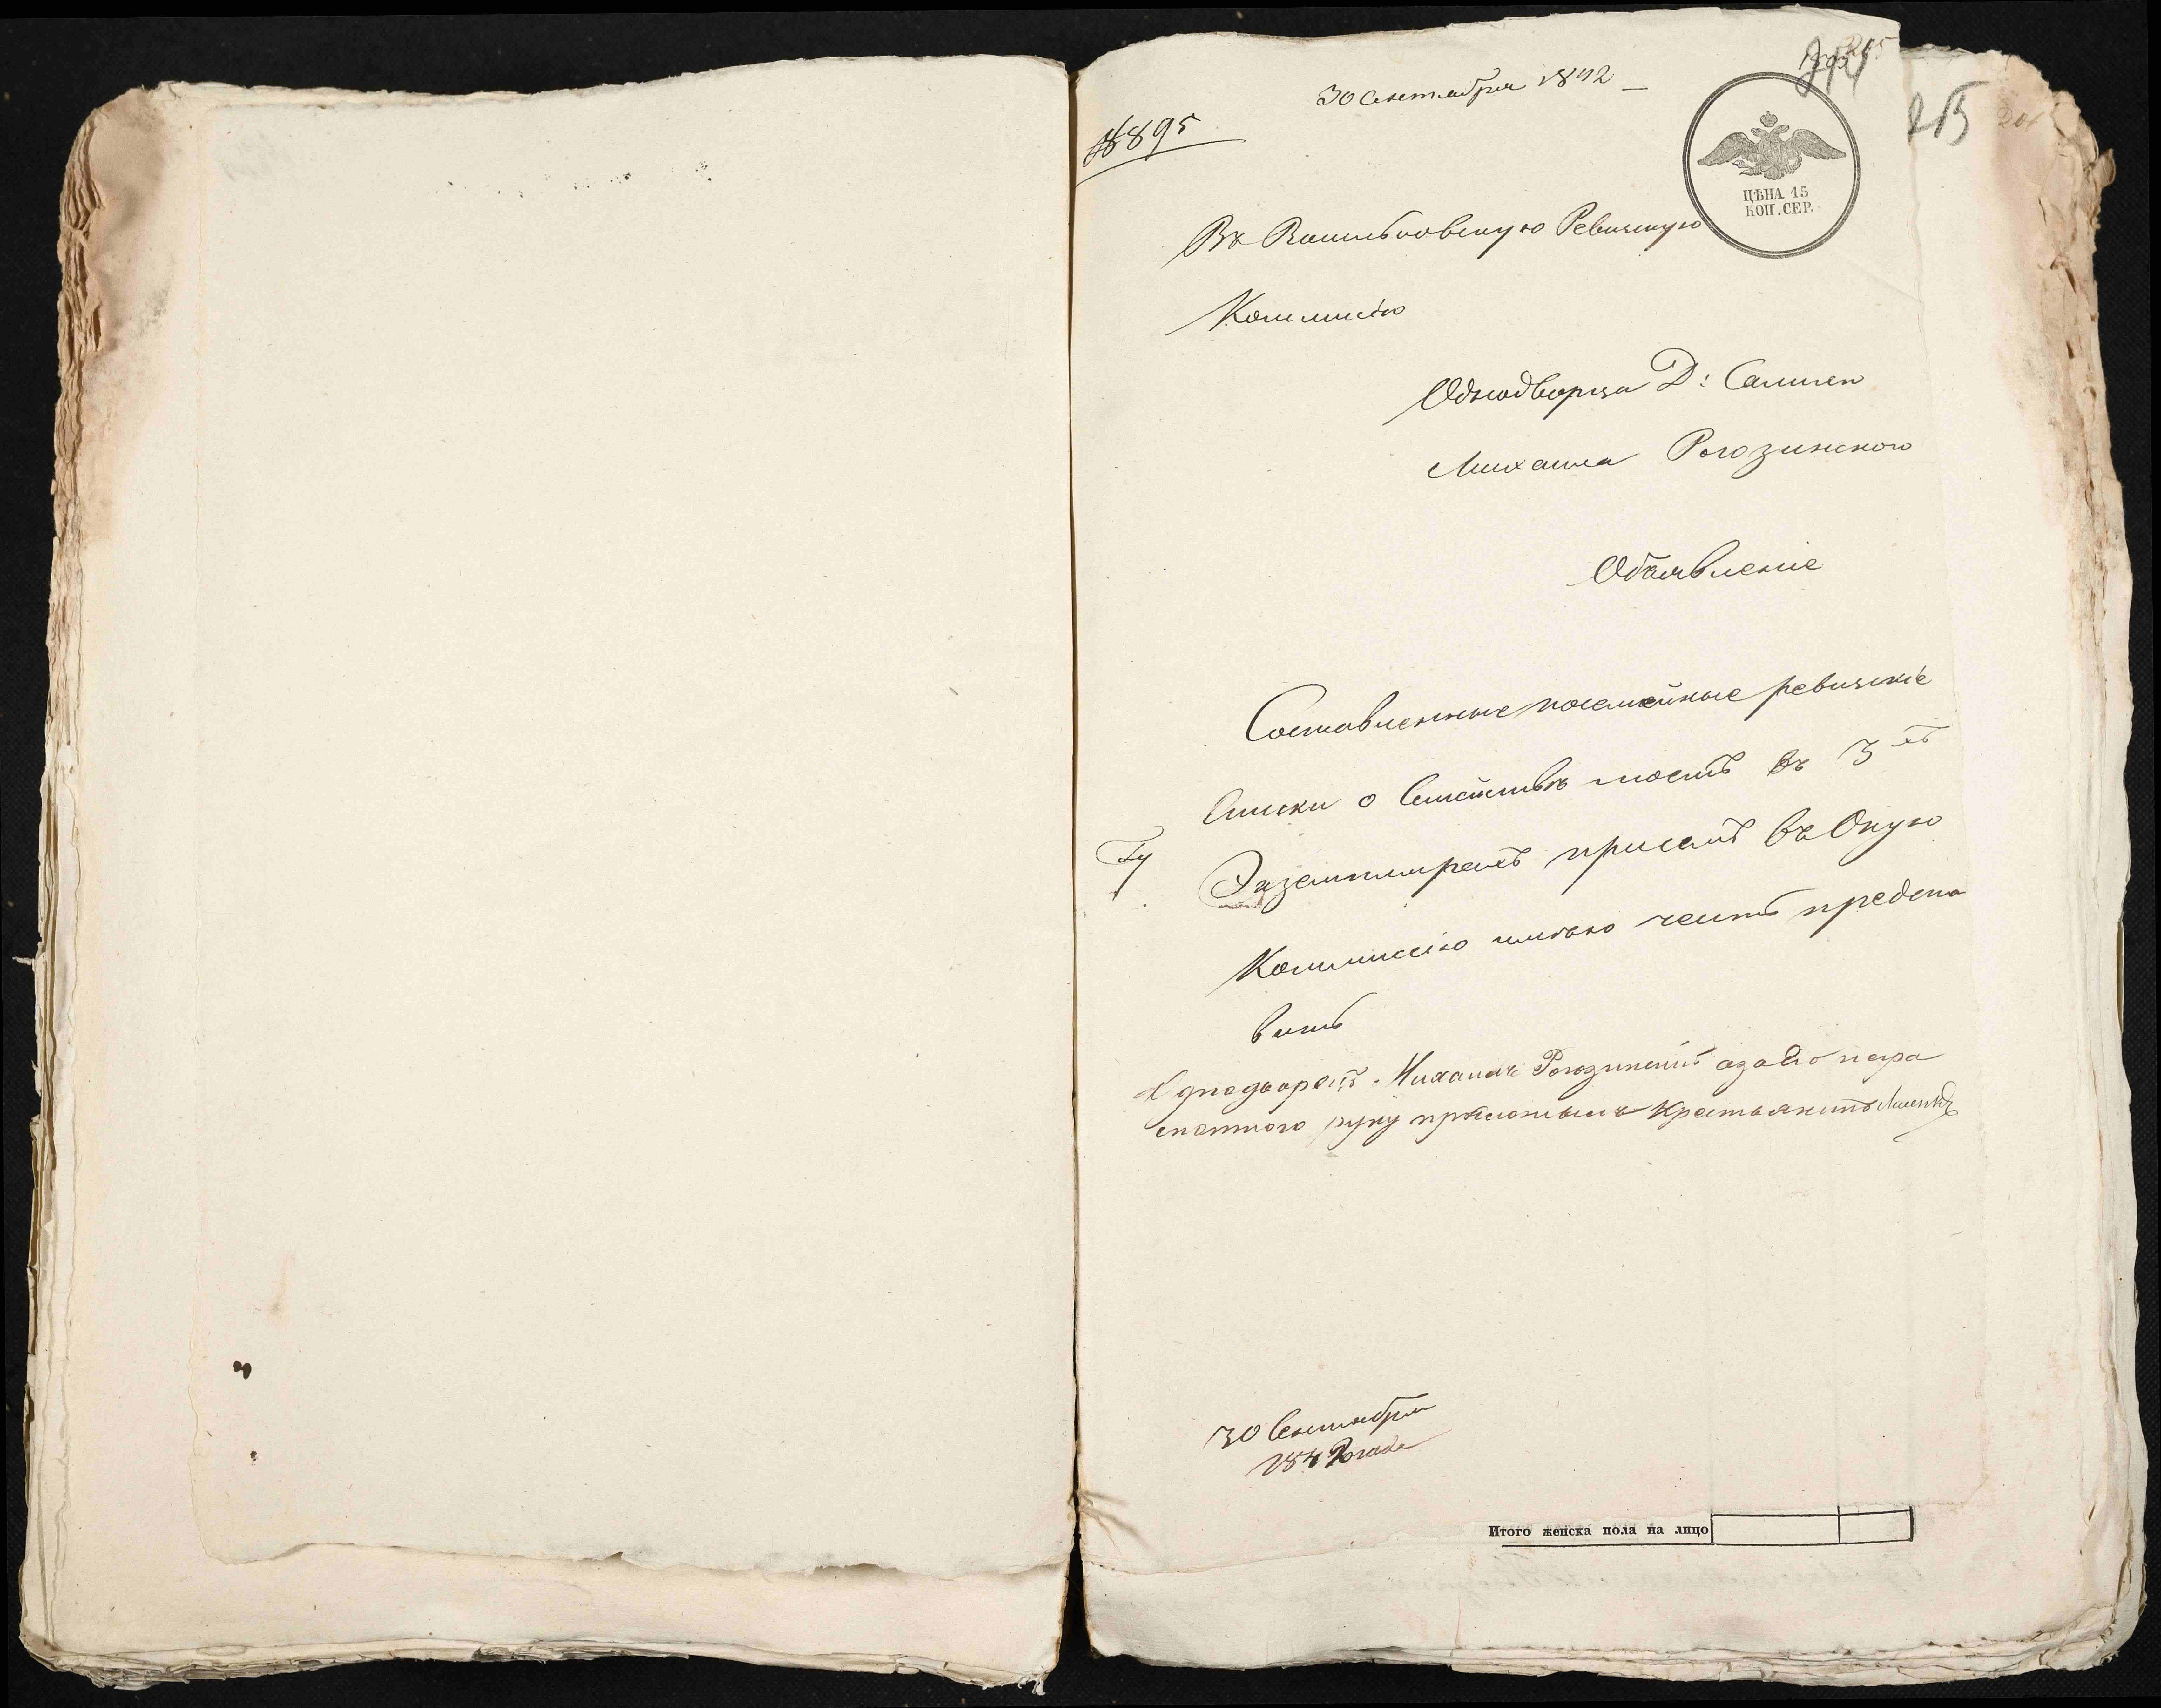 30 Сентября 1842
№895
215
ЦѢНА 15
КОП. СЕР.
Въ Васильковскую Ревизскую
Коммисію
Однодворца Д:
Михаила Рогозинского
Объявленіе
Составленные посемейные ревизскіе
Списки о Семействѣ моемъ въ 3хъ
Экземплярахъ при семъ въ Оную
Коммиссію имѣю честь предста
вить
Однодворецъ Михаилъ Рогозинскій а за Его негра
мотного руку приложилъ Крестьянинъ
30 Сентября
1842 года
Итого женска пола на лицо